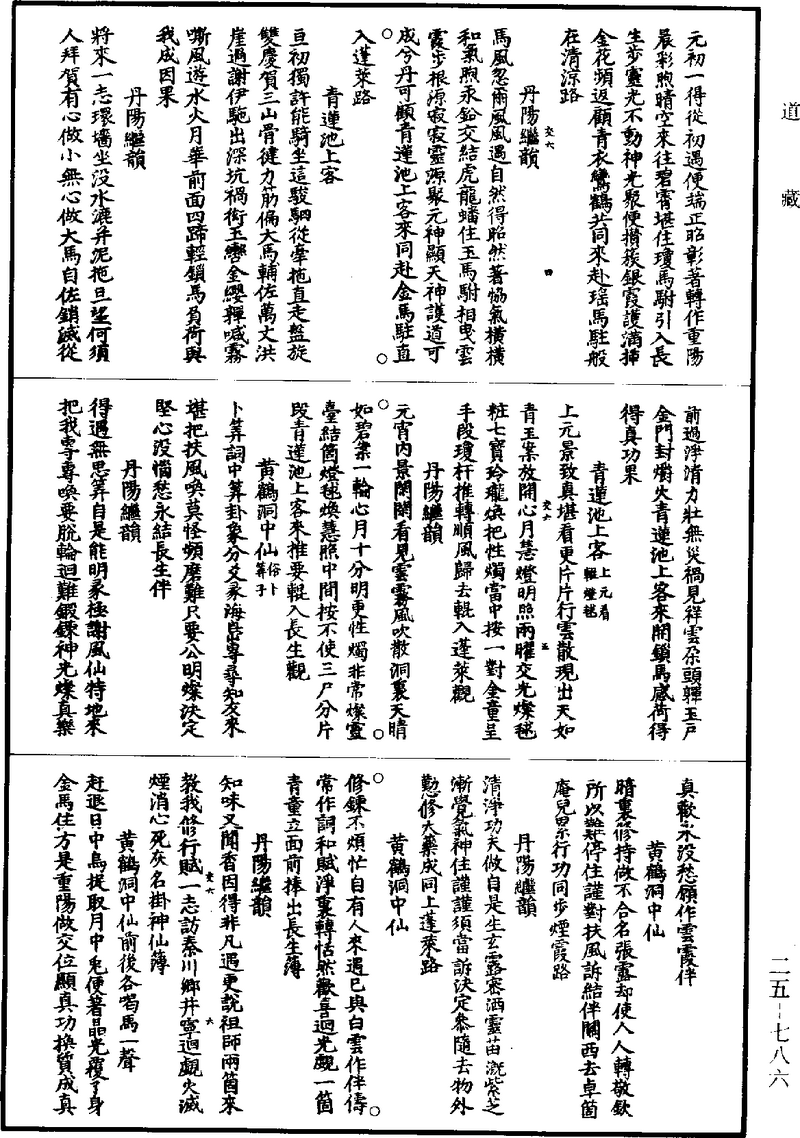 道藏
元初一得從初遇便端正昭彰著轉作重陽
晨彩煦晴空來往碧霄堪住瓊馬駙引入長
生步靈光不動神光聚便攢簇銀霞護滿揷
金花頻返顧青衣鸞鶴共同來赴瑶馬駐般
在清涼路
丹陽繼韻
馬風忽爾風風遇自然得昭然著恊氣橫橫
和氣煦汞鉛交結虎龍蟠住玉馬駙相曳雲
霞步根源寂寂靈源聚元神顯天神護道可
成兮丹可顧青蓮池上客來同赴金馬駐直
入蓬萊路
青蓮池上客
亘初獨許能騎坐這駿駟從牽拖直走盤旋
雙慶賀三山骨徤力筋偏大馬輔佐萬丈洪
崖過謝伊馳出深坑禍銜玉轡金纓嚲喊霧
嘶風遊水火月華前面四蹄輕鎖馬負荷與
我成因果
丹陽繼韻
將來一志環墻坐没水漉并泥拖旦望何須
人拜賀有心做小無心做大馬自佐銷滅從
前過淨清力壯無災禍見祥雲朶頭嚲玉戶
金門封鎖火青蓮池上客來開鎖馬感荷得
得真功果
青蓮池上客上元看輥燈毬
上元景致真堪看更片片行雲散現出天如
青玉案放開心月慧燈明照兩曜交光燦毬
粧七寶玲瓏煥把性燭當中按一對金童呈
手段瓊杆推轉順風歸去輥入蓬萊觀
丹陽繼韻
元宵內景閑閑看見雲霧風吹散洞裏天晴
如碧案一輪心月十分明更性燭非常燦靈
臺結箇燈毬煥慧照中間按不使三尸分片
段青蓮池上客來推要輥入長生觀
黃鶴洞中仙俗卜筭子
卜筭詞中筭卦象分爻彖海島專尋知友來
堪把扶風喚莫怪頻磨難只要公明燦決定
堅心没惱愁永結長生伴
丹陽繼韻
得遇無思筭自是能明彖極謝風仙特地來
把我專專喚要脫輪迴難鍛鍊神光燦真樂
真歡永没愁願作雲霞伴
黃鶴洞中仙
暗裏修持做不合名張露却使人人轉敬欽
所以難停住謹對扶風訴結伴關西去卓箇
庵兒累行功同步煙霞路
丹陽繼韻
清淨功夫做自是生玄露密洒靈苗溉紫芝
漸覺氣神住謹謹須當訴決定叅隨去物外
懃修大藥成同上蓬萊路
黃鶴洞中仙
修鍊不煩忙自有人來遇已與白雲作伴儔
常作詞和賦淨裏轉恬然歡喜迴光覷一箇
青童立面前捧出長生簿
丹陽繼韻
知味又聞香因得非凡遇更說祖師兩箇來
教我修行賦一志訪秦川鄉井寧迴覷火滅
煙消心死灰名掛神仙簿
黃鶴洞中仙前後各喝馬一聲
赶退日中烏捉取月中兔便著晶光覆了身
金馬住方是重陽做交位顯真功換質成真
二五-七八六